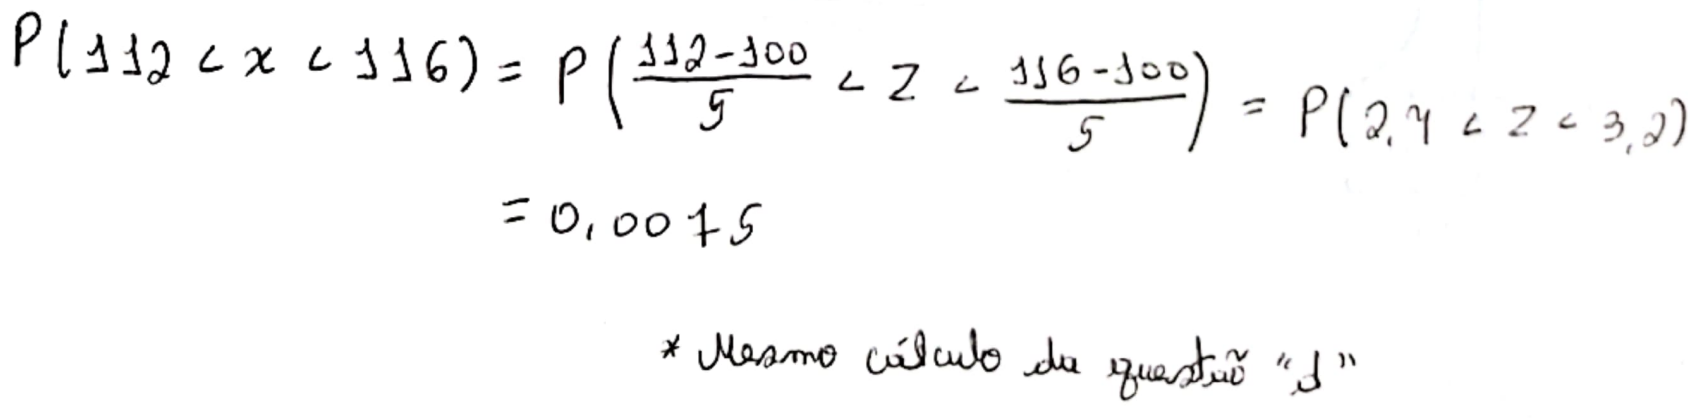 P(112 < x < 116) = P((112-100)/5 < Z < (116-100)/5) = P(2,4 < Z < 3,2)
= 0,0075
* Mesmo cálculo da questão "d"